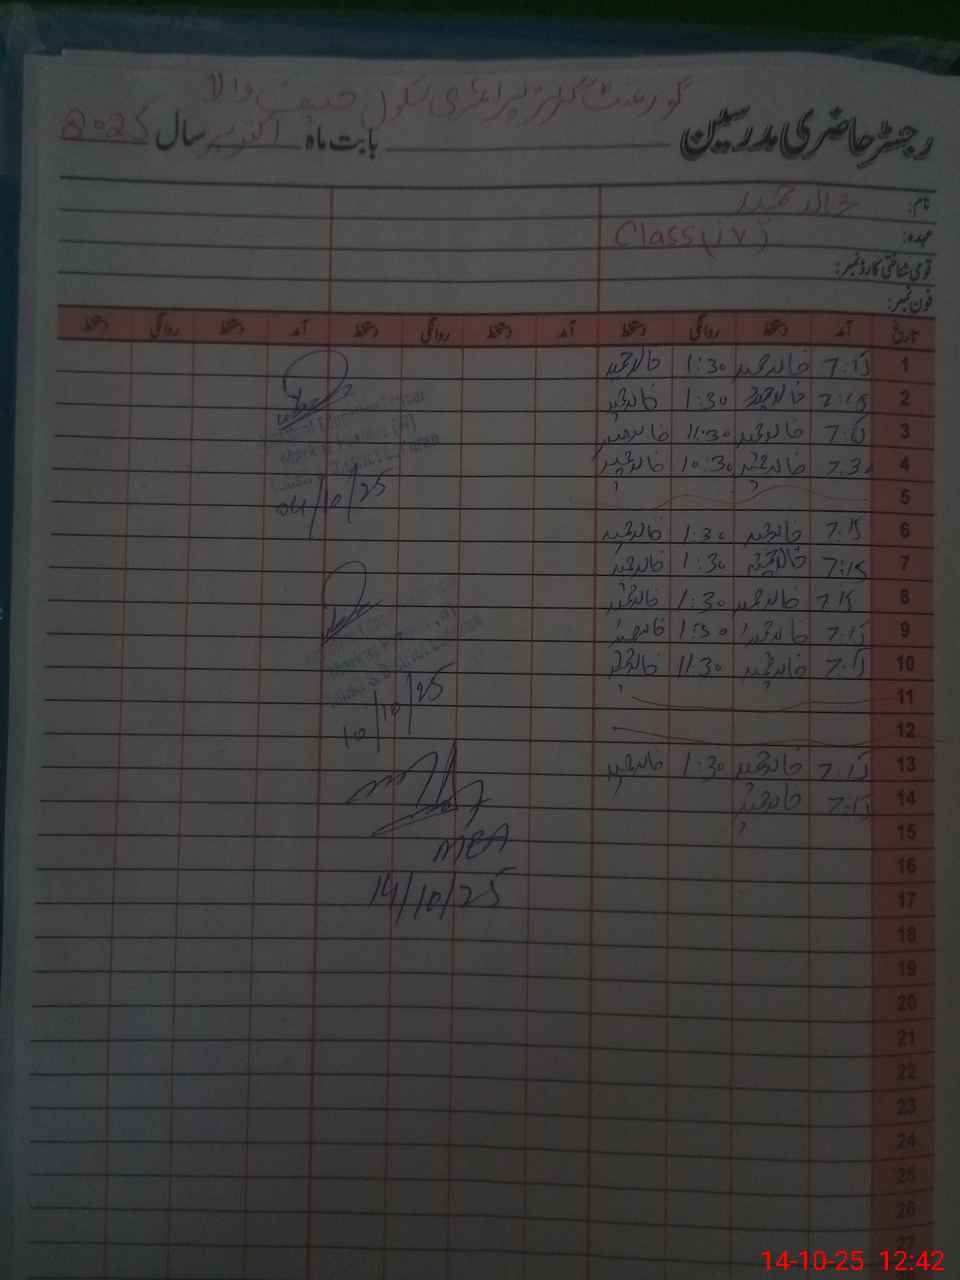 گورنمنٹ گرلز پرائمری سکول والا
رجسٹر حاضری مدرسین بابت ماہ اکتوبر سال 2025
نام: خالد حمید
عہدہ: Class (IV)
قومی شناختی کارڈ نمبر:
فون نمبر:
تاریخ آمد دستخط روانگی دستخط آمد دستخط روانگی دستخط آمد دستخط روانگی دستخط
1 7:15 خالد حمید 1:30 خالد حمید
2 7:15 خالد حمید 1:30 خالد حمید
3 7:15 خالد حمید 11:30 خالد حمید
4 7:30 خالد حمید 10:30 خالد حمید
5
04/10/25
6 7:15 خالد حمید 1:30 خالد حمید
7 7:15 خالد حمید 1:30 خالد حمید
8 7:15 خالد حمید 1:30 خالد حمید
9 7:15 خالد حمید 1:30 خالد حمید
10 7:15 خالد حمید 11:30 خالد حمید
11
12
10/10/25
13 7:15 خالد حمید 1:30 خالد حمید
14 7:15 خالد حمید
15
MEA
16
17
14/10/25
18
19
20
21
22
23
24
25
26
27
14-10-25 12:42